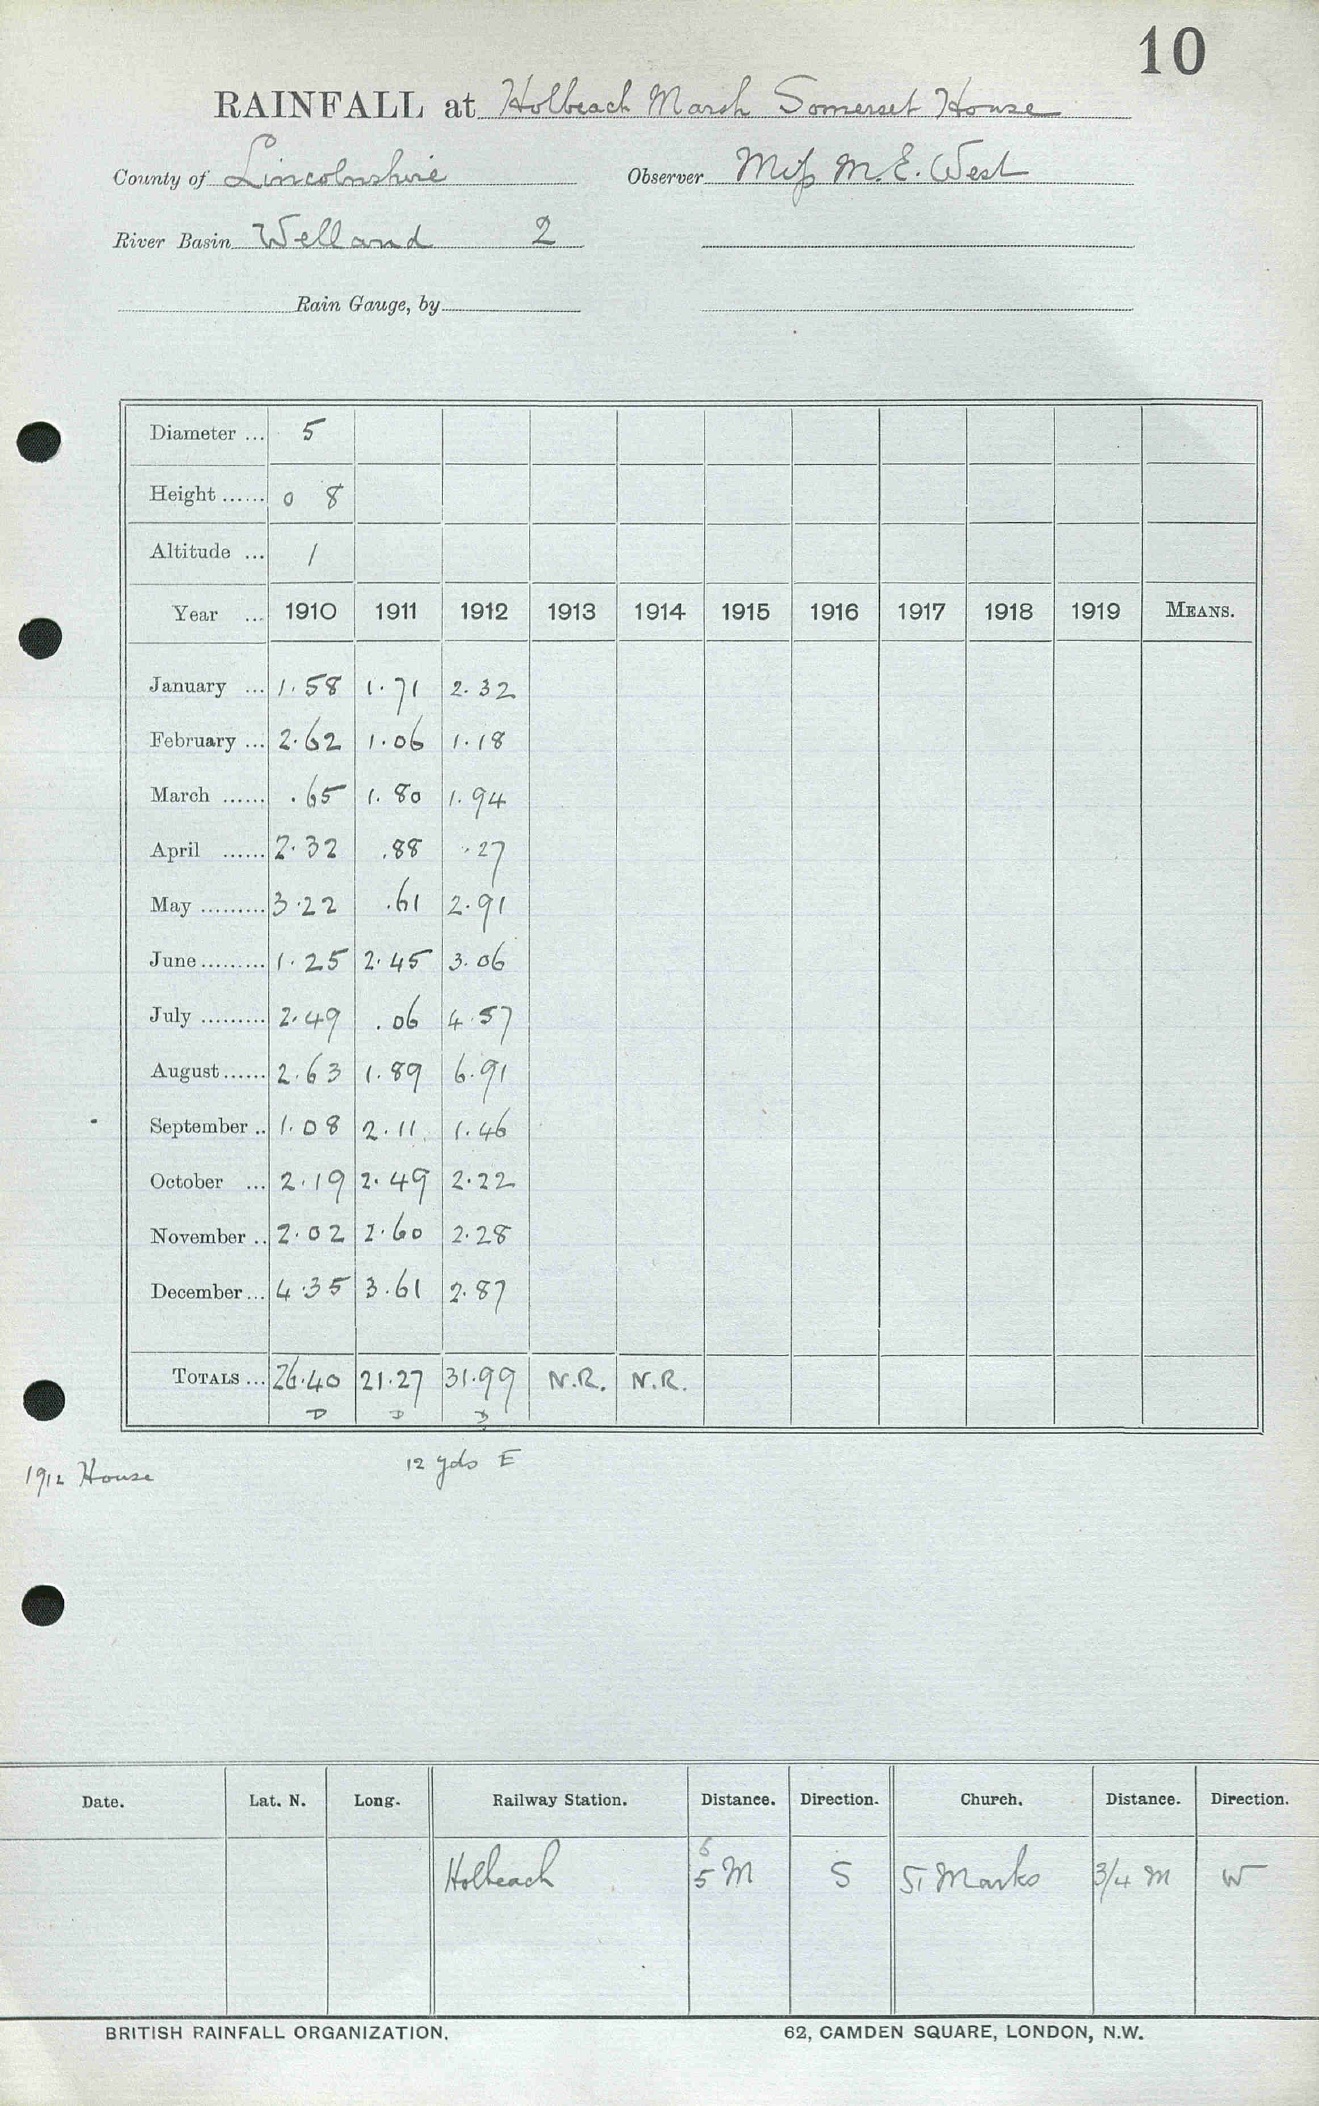 10
RAINFALL at Holbeach Marsh Somerset House
County of Lincolnshire Observer Miss M.E. West
River Basin Welland 2
Rain Gauge, by
Diameter ... 5
Height ...... 0 8
Altitude ... 1
Year ... 1910 1911 1912 1913 1914 1915 1916 1917 1918 1919 MEANS.
January ... 1.58 1.71 2.32
February ... 2.62 1.06 1.18
March ...... .65 1.80 1.94
April ...... 2.32 .88 .27
May ......... 3.22 .61 2.91
June ......... 1.25 2.45 3.06
July ......... 2.49 .06 4.57
August ...... 2.63 1.89 6.91
September .. 1.08 2.11 1.46
October ... 2.19 2.49 2.22
November .. 2.02 2.60 2.28
December ... 4.35 3.61 2.87
TOTALS ... 26.40 21.27 31.99 N.R. N.R.
D D D
1912 House 12 yds E
Date. Lat. N. Long. Railway Station. Distance. Direction. Church. Distance. Direction.
6
Holbeach 5 M S St Marks 3/4 M W
BRITISH RAINFALL ORGANIZATION. 62, CAMDEN SQUARE, LONDON, N.W.